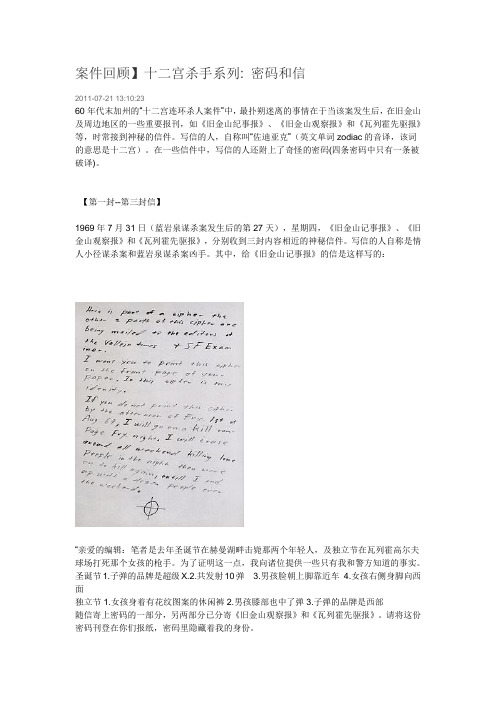 案件回顾】十二宫杀手系列: 密码和信
2011-07-21 13:10:23
60 年代末加州的“十二宫连环杀人案件”中，最扑朔迷离的事情在于当该案发生后，在旧金山
及周边地区的一些重要报刊，如《旧金山纪事报》、《旧金山观察报》和《瓦列霍先驱报》
等，时常接到神秘的信件。写信的人，自称叫“佐迪亚克”（英文单词 zodiac 的音译，该词
的意思是十二宫）。在一些信件中，写信的人还附上了奇怪的密码(四条密码中只有一条被
破译)。
【第一封--第三封信】
1969 年 7 月 31 日（蓝岩泉谋杀案发生后的第 27 天），星期四，《旧金山记事报》、《旧
金山观察报》和《瓦列霍先驱报》，分别收到三封内容相近的神秘信件。写信的人自称是情
人小径谋杀案和蓝岩泉谋杀案凶手。其中，给《旧金山记事报》的信是这样写的：
Here is part of a cipher the
other 2 parts of this cipher are
being mailed to the editors of
the Vallejo times + SF Exam
iner.
I want you to print this cipher
on the front page of your
paper. In this cipher is my
idenity.
If you do not print this cipher
by the afternoon of Fry. 1st of
Aug 69, I will go on a kill ram-
Page Fry. night. I will cruse
around all weekend killing lone
people in the night then move
on to kill again, untill I end
up with a dozen people over
the weekend.
“亲爱的编辑：笔者是去年圣诞节在赫曼湖畔击毙那两个年轻人，及独立节在瓦列霍高尔夫
球场打死那个女孩的枪手。为了证明这一点，我向诸位提供一些只有我和警方知道的事实。
圣诞节 1.子弹的品牌是超级 X.2.共发射 10 弹 3.男孩脸朝上脚靠近车 4.女孩右侧身脚向西
面
独立节 1.女孩身着有花纹图案的休闲裤 2.男孩膝部也中了弹 3.子弹的品牌是西部
随信寄上密码的一部分，另两部分已分寄《旧金山观察报》和《瓦列霍先驱报》。请将这份
密码刊登在你们报纸，密码里隐藏着我的身份。